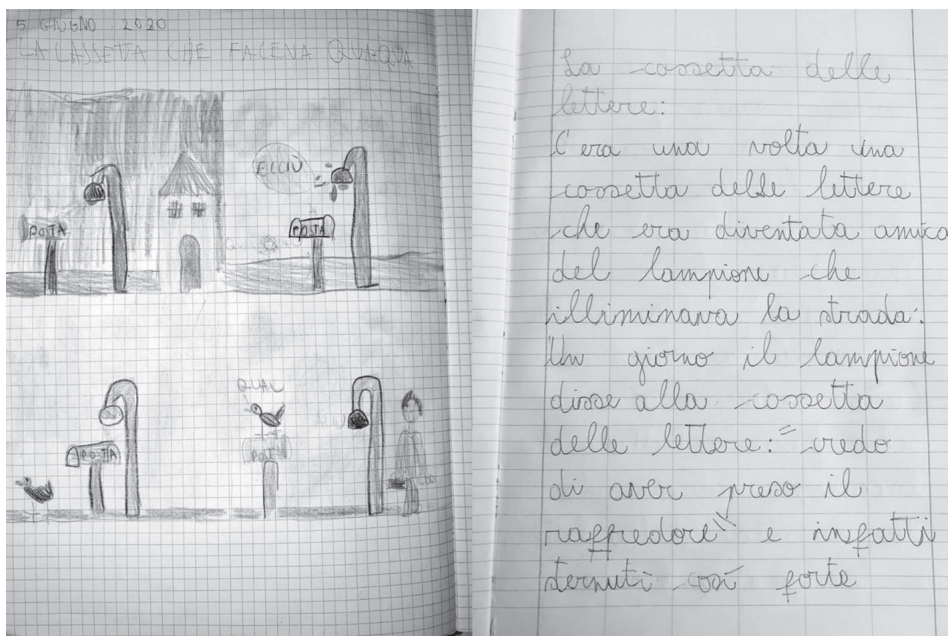 5 GIUGNO 2020
LA CASSETTA CHE FACEVA QUAQUA
ECCIÙ
POSTA
POSTA
QUAC
POSTA
POSTA
La cassetta delle
lettere:
C'era una volta una
cassetta delle lettere
che era diventata amica
del lampione che
illiminava la strada.
Un giorno il lampione
disse alla cassetta
delle lettere: "credo
di aver preso il
raffredore" e insfatti
sternuti così forte